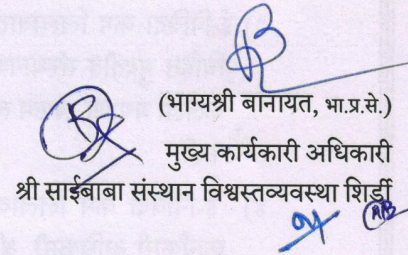 (भाग्यश्री बानायत, भा.प्र.से.)
मुख्य कार्यकारी अधिकारी
श्री साईबाबा संस्थान विश्वस्तव्यवस्था शिर्डी